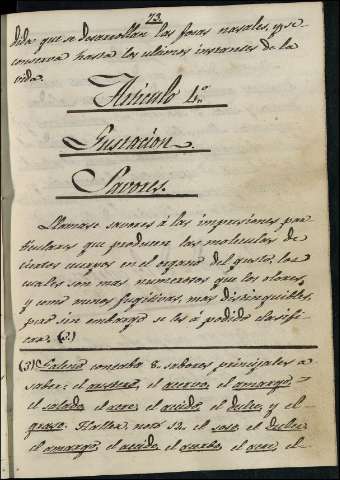 73.
dida que se desarrollan las fosas nasales, y se
conserva hasta los ultimos instantes de la
vida.
Articulo 4.º
Gustacion.
Savores.
Llamase savores á las impresiones par
ticulares que producen las moleculas de
ciertos cuerpos en el organo del gusto, los
cuales son mas numerosos que los olores,
y como menos fugitivos, mas distinguibles
pero sin embargo se les á podido clasifi
car, (3.)
(3) Galeno contaba 8 sabores principales a
saber: el austero, el acervo, el amargo,
el salado, el acre, el acido, el dulce, y el
graso. Haller, notó 12. el soso, el dulce,
el amargo, el acido, el acerbo, el acre, el